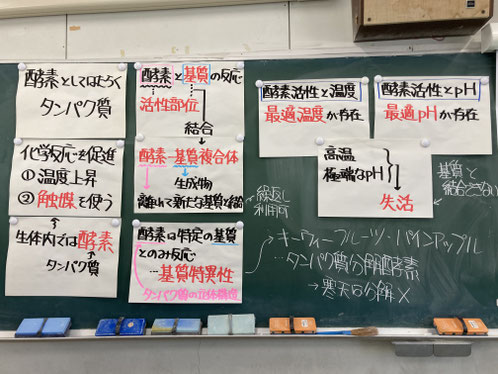 酵素としてはたらく
タンパク質
化学反応を促進
①温度上昇
②触媒を使う
生体内では酵素
タンパク質
酵素と基質の反応
活性部位
結合
酵素-基質複合体
生成物
離れて新たな基質と結合
繰返し
利用可
酵素は特定の基質
とのみ反応
…基質特異性
タンパク質の立体構造
酵素活性と温度
最適温度が存在
酵素活性とpH
最適pHが存在
高温
極端なpH
失活
基質と
結合できない
キーウィーフルーツ・パインアップル
…タンパク質分解酵素
→寒天は分解×